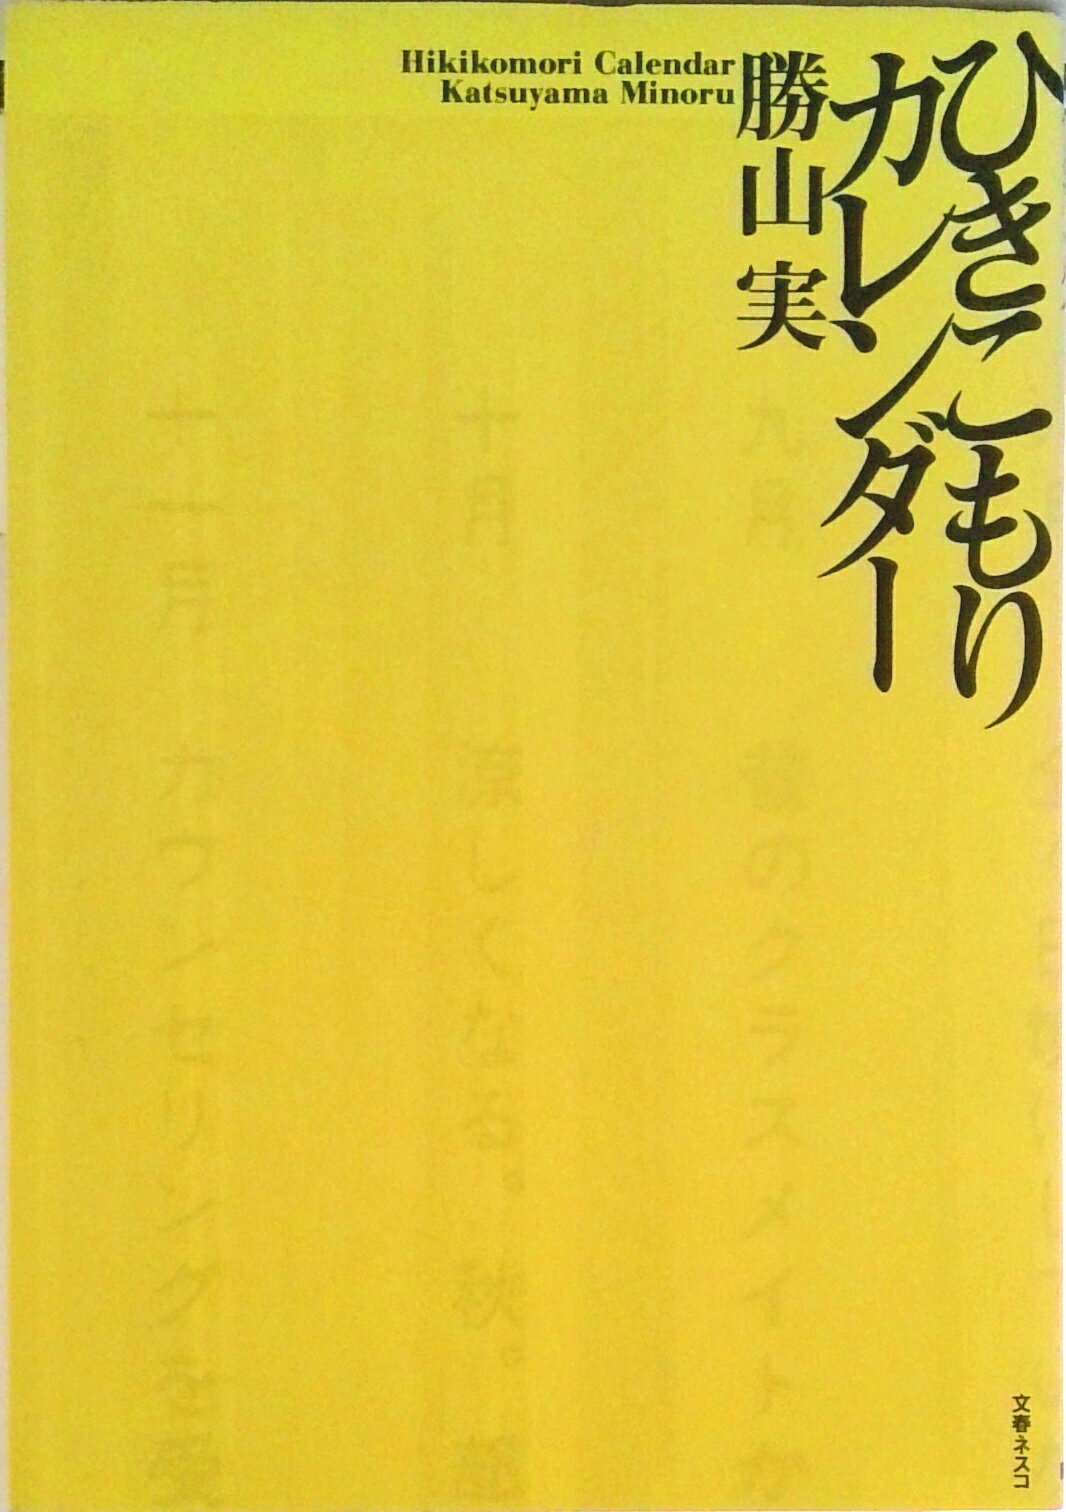 ひきこもり
カレンダー
勝山 実
Hikikomori Calendar
Katsuyama Minoru
九月 昔のクラスメイトか
十月 涼しくなる。秋。部
十一月 カウンセリングを受
文春ネスコ